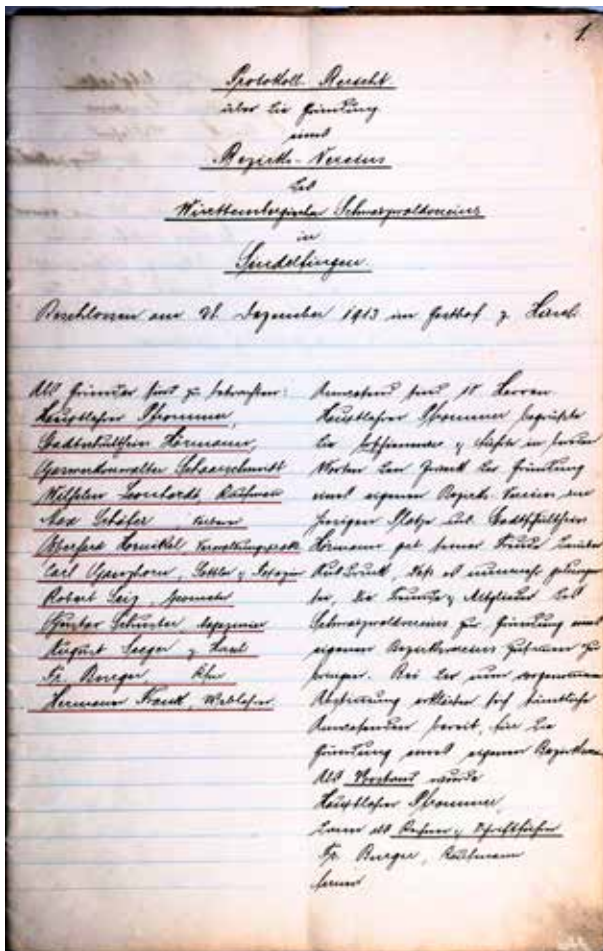 1.
Protokoll Bericht
über die Gründung
eines
Bezirks-Vereins
des
Württembergischen Schwarzwaldvereins
in
Sindelfingen.
Beschlossen am 21. Dezember 1913 im Gasthof z. Hirsch.
Als Gründer sind zu betrachten:
Hauptlehrer Pfrommer,
Stadtschultheiss Hörmann,
Gaswerkverwalter Schaarschmidt
Wilhelm Leonhardt, Kaufmann
Max Schäfer,
Eberhard Hornikel, Verwaltungsprakt
Carl Ganzhorn, Sattler & Tapezier
Robert Seiz,
Gustav Schuster,
August Seeger z. Hirsch
Fr. Burger, Kfm
Hermann Frank, Weblehrer.
Anwesend sind Herren
Hauptlehrer Pfrommer begrüsste
die Erschienenen & in
Worten den Zweck der Gründung
eines eigenen Bezirks-Vereins am
hiesigen Platze. Stadtschultheiss
Hörmann gab seiner Freude darüber
Ausdruck, dass es nunmehr gelungen
sei, die Freunde & Mitglieder des
Schwarzwaldvereins zur Gründung eines
eigenen Bezirksvereins zusammen zu
bringen. Bei der nun vorgenommenen
Abstimmung erklärten sich sämtliche
Anwesenden bereit, für die
Gründung eines eigenen Bezirksvereins.
Als Vorstand wurde
Hauptlehrer Pfrommer,
dann als Rechner & Schriftführer
Fr. Burger, Kaufmann
ferner